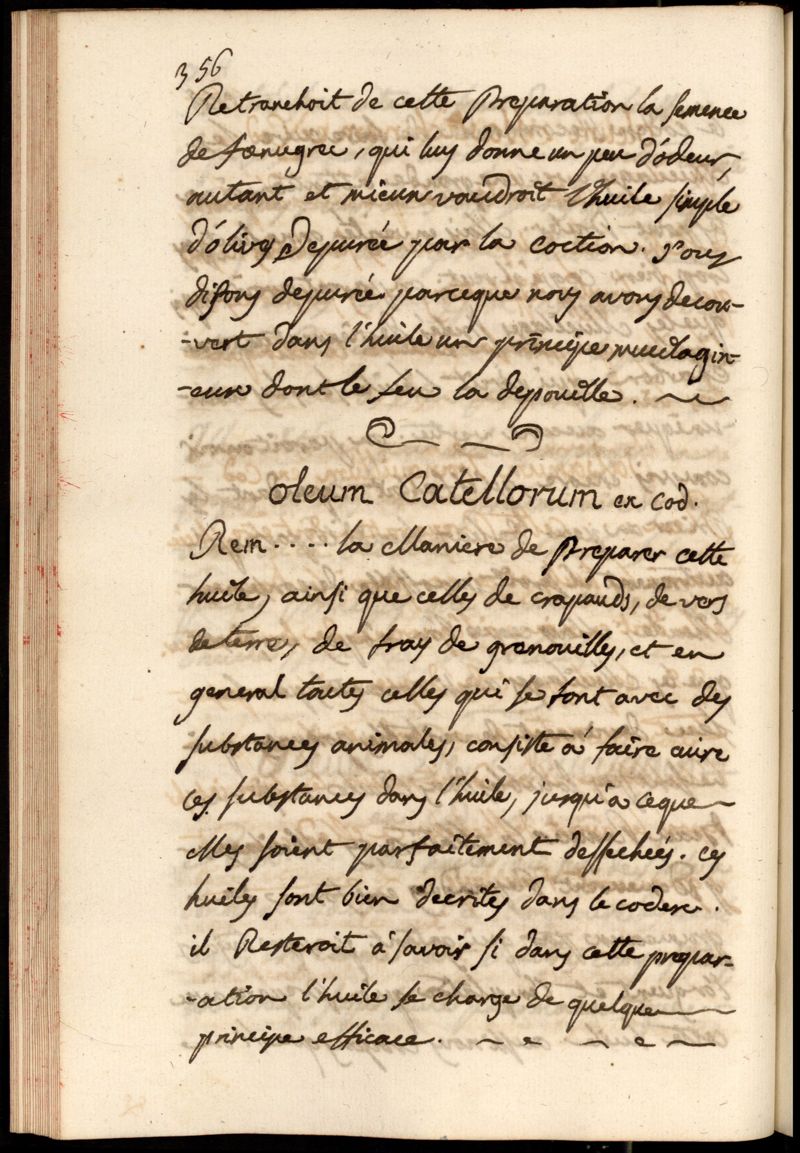 356
Retranchoit de cette Preparation la semence
de fœnugrec, qui luy donne un peu d'odeur,
autant et mieux vaudroit l'huile simple
d'olives Depurée par la coction. Nous
disons depurée parceque nous avons decou-
-vert dans l'huile un principe mucilagin-
-eux dont le feu la depouille.
oleum Catellorum ex cod.
Rem.... la Maniere de Preparer cette
huile, ainsi que celles de crapauds, de vers
de terre, de fray de grenouilles, et en
general toutes celles qui se font avec des
substances animales, consiste a faire cuire
ces substances dans l'huile, jusqu'a ceque
elles soient parfaitement dessechées. ces
huiles sont bien decrites dans le codex.
il Resteroit a savoir si dans cette prepar-
-ation l'huile se charge de quelque
principe efficace.